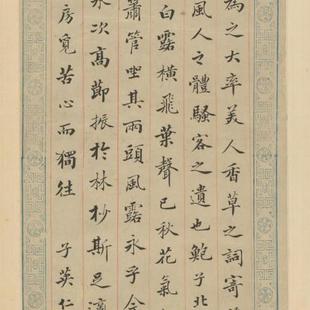 為之大率美人香草之詞寄
風人之體騷客之遺也鮑子北
白露橫飛葉聲已秋花氣
簫管聖其兩頭風露永乎
永次高節振於林杪斯足
房覓苦心而獨往 子英仁